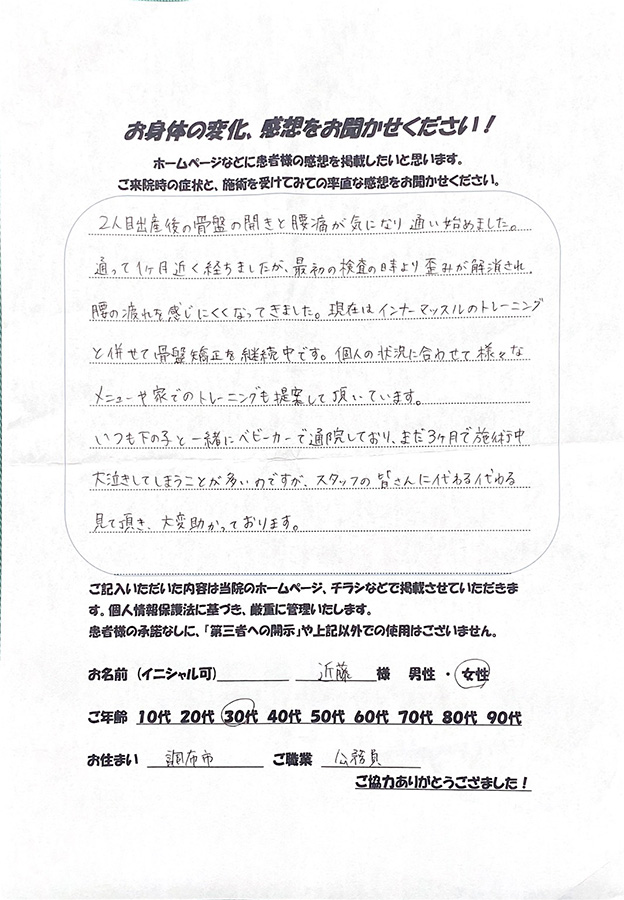 お身体の変化、感想をお聞かせください！
ホームページなどに患者様の感想を掲載したいと思います。
ご来院時の症状と、施術を受けてみての率直な感想をお聞かせください。
2人目出産後の骨盤の開きと腰痛が気になり通い始めました。
通って1ヶ月近く経ちましたが、最初の検査の時より歪みが解消され、
腰の疲れを感じにくくなってきました。現在はインナーマッスルのトレーニング
と併せて骨盤矯正を継続中です。個人の状況に合わせて様々な
メニューや家でのトレーニングも提案して頂いています。
いつも下の子と一緒にベビーカーで通院しており、まだ3ヶ月で施術中
大泣きしてしまうことが多いのですが、スタッフの皆さんに代わる代わる
見て頂き、大変助かっております。
ご記入いただいた内容は当院のホームページ、チラシなどで掲載させていただきま
す。個人情報保護法に基づき、厳重に管理いたします。
患者様の承諾なしに、「第三者への開示」や上記以外での使用はございません。
お名前（イニシャル可） 近藤 様 男性 ・ 女性
ご年齢 10代 20代 30代 40代 50代 60代 70代 80代 90代
お住まい 調布市 ご職業 公務員
ご協力ありがとうござました！